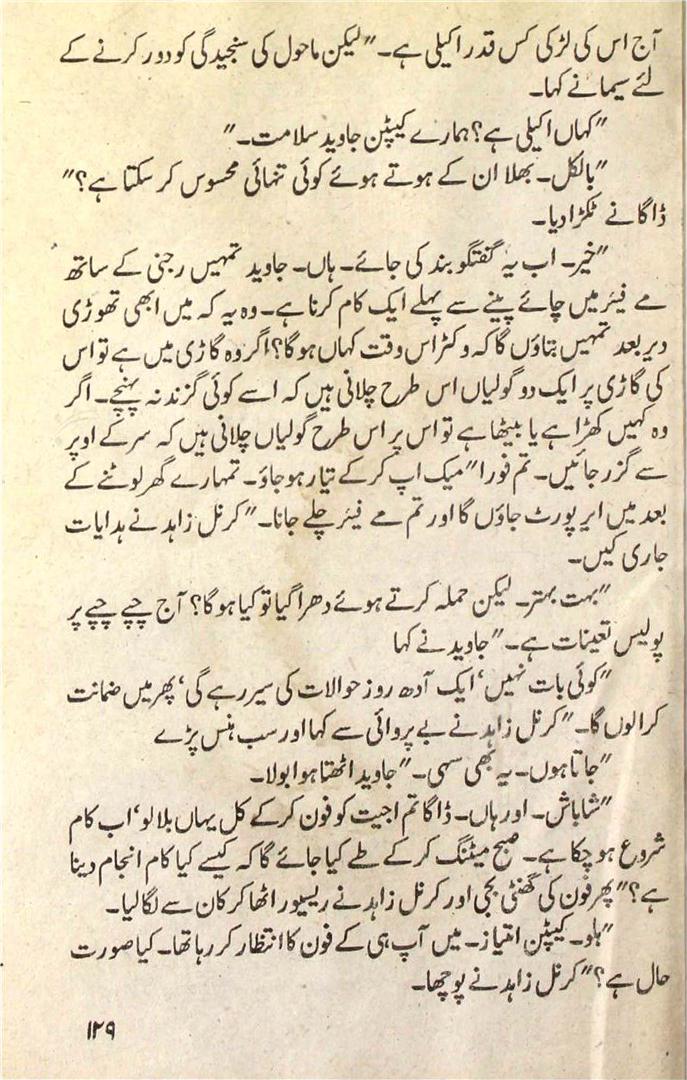 آج اس کی لڑکی کس قدر اکیلی ہے۔" لیکن ماحول کی سنجیدگی کو دور کرنے کے
لئے سیما نے کہا۔
"کہاں اکیلی ہے؟ ہمارے کیپٹن جاوید سلامت۔"
"بالکل۔ بھلا ان کے ہوتے ہوئے کوئی تنہائی محسوس کر سکتا ہے؟"
ڈاگا نے ٹکڑا دیا۔
"خیر۔ اب یہ گفتگو بند کی جائے۔ ہاں۔ جاوید تمہیں رجنی کے ساتھ
مے فیئر میں چائے پینے سے پہلے ایک کام کرنا ہے۔ وہ یہ کہ میں ابھی تھوڑی
دیر بعد تمہیں بتاؤں گا کہ وکٹر اس وقت کہاں ہو گا؟ اگر وہ گاڑی میں ہے تو اس
کی گاڑی پر ایک دو گولیاں اس طرح چلانی ہیں کہ اسے کوئی گزند نہ پہنچے۔ اگر
وہ کہیں کھڑا ہے یا بیٹھا ہے تو اس پر اس طرح گولیاں چلانی ہیں کہ سر کے اوپر
سے گزر جائیں۔ تم فورا" میک اپ کر کے تیار ہو جاؤ۔ تمہارے گھر لوٹنے کے
بعد میں ایرپورٹ جاؤں گا اور تم مے فیئر چلے جانا۔" کرنل زاہد نے ہدایات
جاری کیں۔
"بہت بہتر۔ لیکن حملہ کرتے ہوئے دھرا گیا تو کیا ہو گا؟ آج چپے چپے پر
پولیس تعینات ہے۔" جاوید نے کہا
"کوئی بات نہیں' ایک آدھ روز حوالات کی سیر رہے گی' پھر میں ضمانت
کرا لوں گا۔" کرنل زاہد نے بے پروائی سے کہا اور سب ہنس پڑے
"جاتا ہوں۔ یہ بھی سہی۔" جاوید اٹھتا ہوا بولا۔
"شاباش۔ اور ہاں۔ ڈاگا تم اجیت کو فون کر کے کل یہاں بلا لو' اب کام
شروع ہو چکا ہے۔ صبح میٹنگ کر کے طے کیا جائے گا کہ کیسے کیا کام انجام دینا
ہے؟" پھر فون کی گھنٹی بجی اور کرنل زاہد نے ریسیور اٹھا کر کان سے لگا لیا۔
"ہلو۔ کیپٹن امتیاز۔ میں آپ ہی کے فون کا انتظار کر رہا تھا۔ کیا صورت
حال ہے؟" کرنل زاہد نے پوچھا۔
۱۲۹